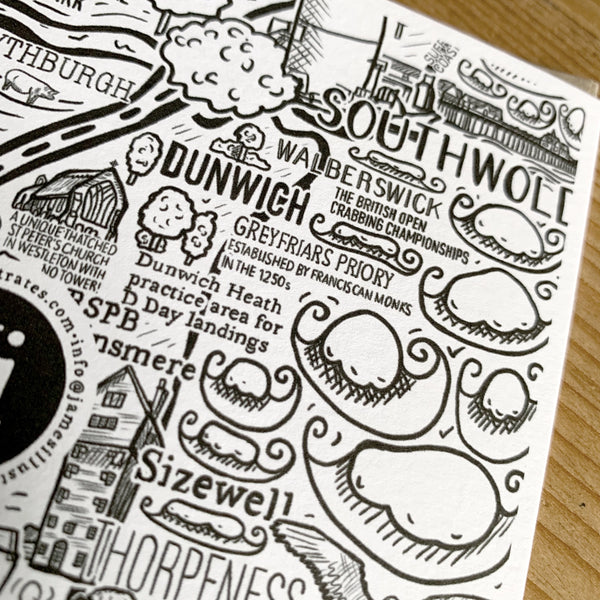 YTHBURGH
SOUTHWOLD
WALBERSWICK
THE BRITISH OPEN
CRABBING CHAMPIONSHIPS
DUNWICH
GREYFRIARS PRIORY
ESTABLISHED BY FRANCISCAN MONKS
IN THE 1250s
A UNIQUE THATCHED
ST PETER'S CHURCH
IN WESTLETON WITH
NO TOWER!
Dunwich Heath
practice area for
D Day landings
RSPB
nsmere
Sizewell
THORPENESS
trates.com·info@jamesillust